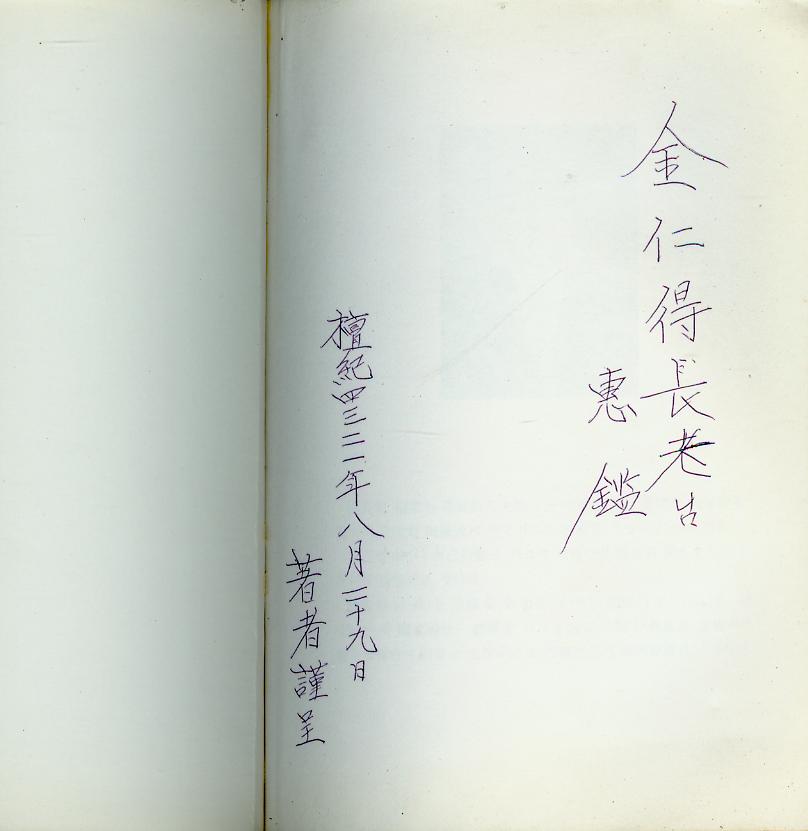 金仁得長老님
惠鑑
檀紀四三二一年八月二十九日
著者謹呈